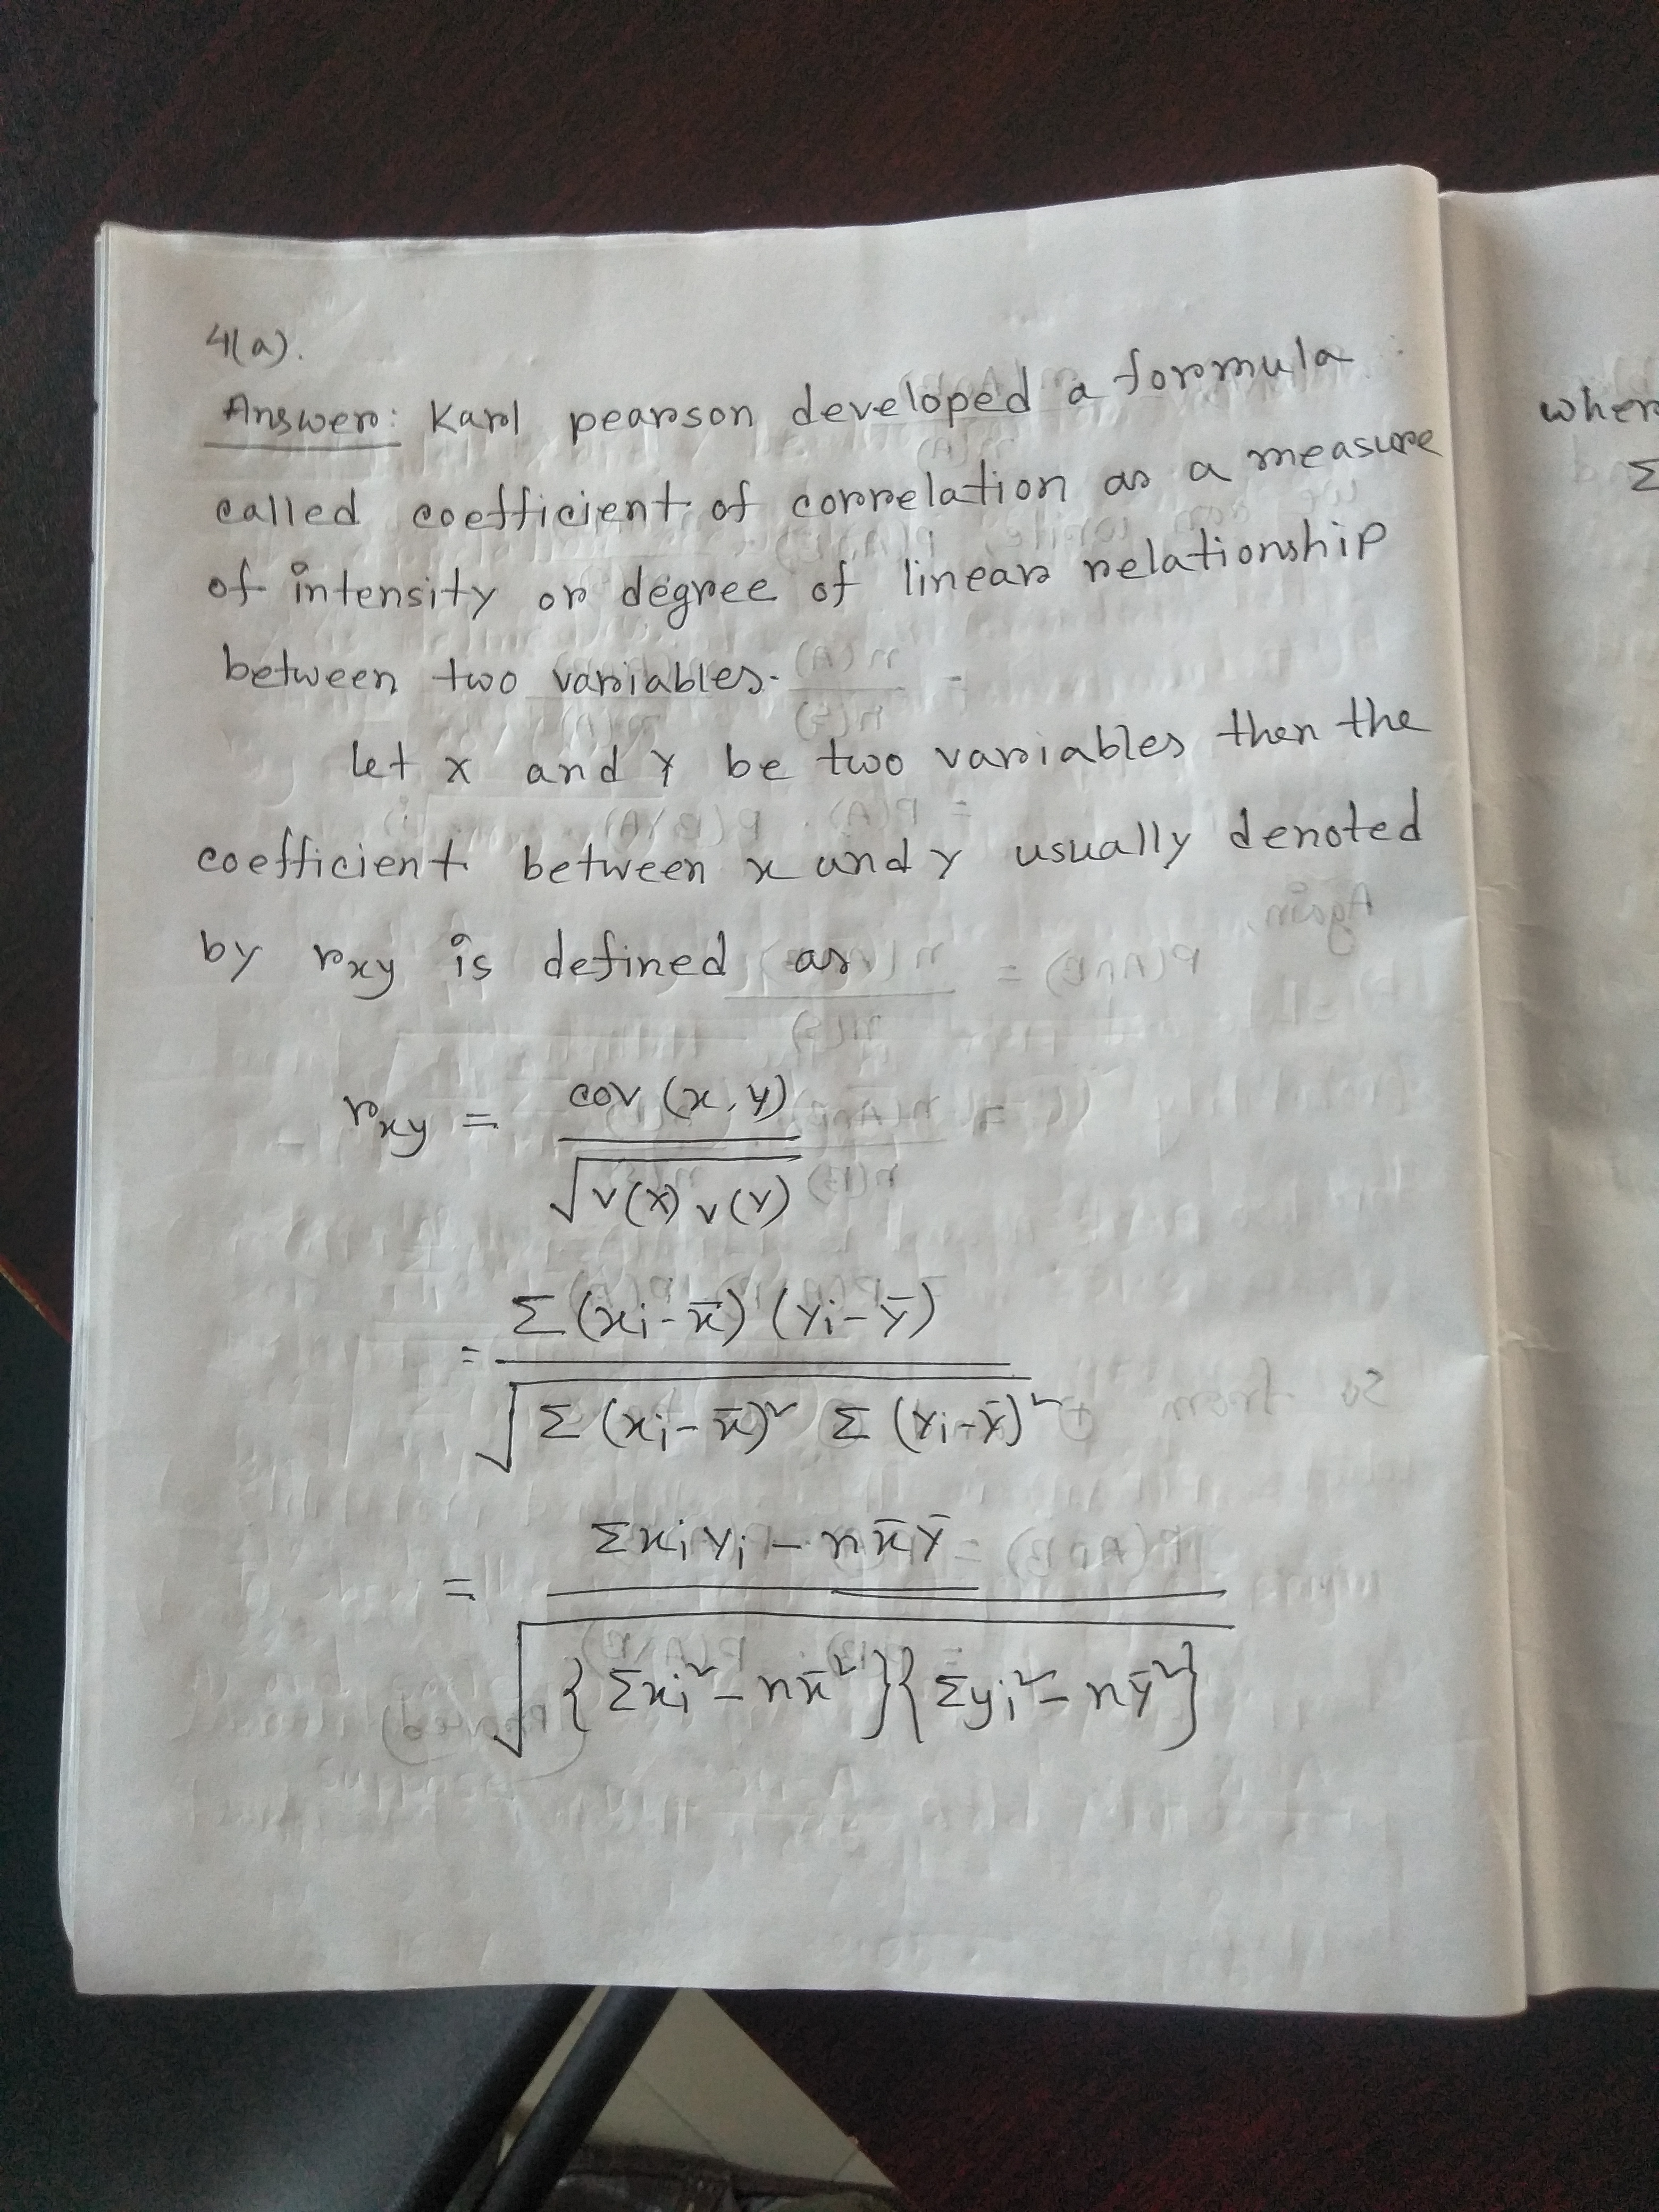 4(a).
Answer: Karl pearson developed a formula
called coefficient of correlation as a measure
of intensity or degree of linear relationship
between two variables.
let x and y be two variables then the
coefficient between x and y usually denoted
by rxy is defined as
rxy = cov (x, y) / √v(x) v(y)
= Σ(xi - x̄) (yi - ȳ) / √Σ(xi - x̄)² Σ(yi - ȳ)²
= Σxiyi - nx̄ȳ / √{Σxi² - nx̄²}{Σyi² - nȳ²}
Σ